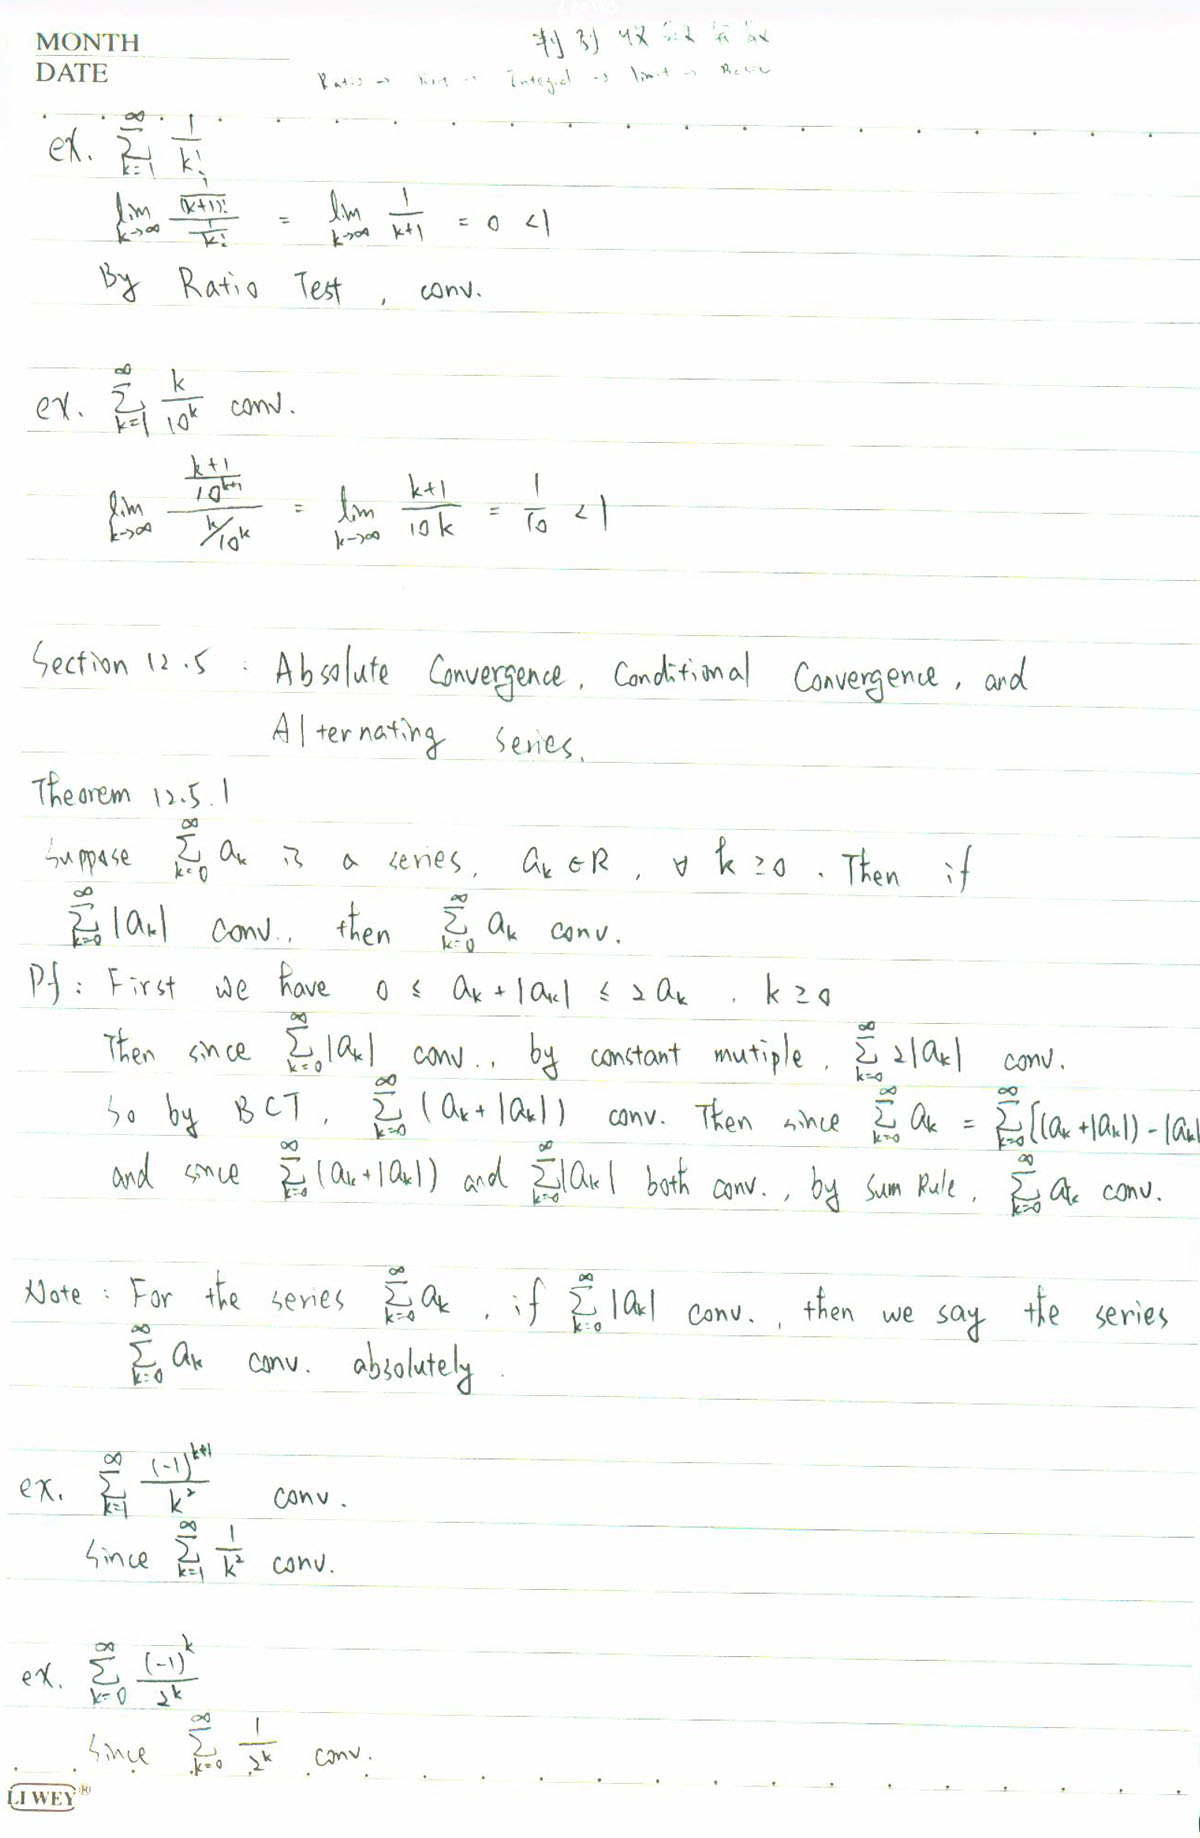 MONTH
DATE
判別級數
Ratio → → Integral → limit → Basic
ex. ∑_{k=1}^{∞} 1/k!
lim_{k→∞} (1/(k+1)!)/(1/k!) = lim_{k→∞} 1/(k+1) = 0 < 1
By Ratio Test, conv.
ex. ∑_{k=1}^{∞} k/10^k conv.
lim_{k→∞} ((k+1)/10^{k+1})/(k/10^k) = lim_{k→∞} (k+1)/(10k) = 1/10 < 1
Section 12.5 : Absolute Convergence, Conditional Convergence, and
Alternating series.
Theorem 12.5.1
Suppose ∑_{k=0}^{∞} a_k is a series, a_k ∈ R, ∀ k ≥ 0. Then if
∑_{k=0}^{∞} |a_k| conv., then ∑_{k=0}^{∞} a_k conv.
Pf : First we have 0 ≤ a_k + |a_k| ≤ 2 a_k, k ≥ 0
Then since ∑_{k=0}^{∞} |a_k| conv., by constant mutiple, ∑_{k=0}^{∞} 2|a_k| conv.
So by BCT, ∑_{k=0}^{∞} (a_k + |a_k|) conv. Then since ∑_{k=0}^{∞} a_k = ∑_{k=0}^{∞} [(a_k + |a_k|) - |a_k|
and since ∑_{k=0}^{∞} (a_k + |a_k|) and ∑_{k=0}^{∞} |a_k| both conv., by Sum Rule, ∑_{k=0}^{∞} a_k conv.
Note : For the series ∑_{k=0}^{∞} a_k, if ∑_{k=0}^{∞} |a_k| conv., then we say the series
∑_{k=0}^{∞} a_k conv. absolutely.
ex. ∑_{k=1}^{∞} (-1)^{k+1}/k^2 conv.
Since ∑_{k=1}^{∞} 1/k^2 conv.
ex. ∑_{k=0}^{∞} (-1)^k/2^k
Since ∑_{k=0}^{∞} 1/2^k conv.
LI WEY®